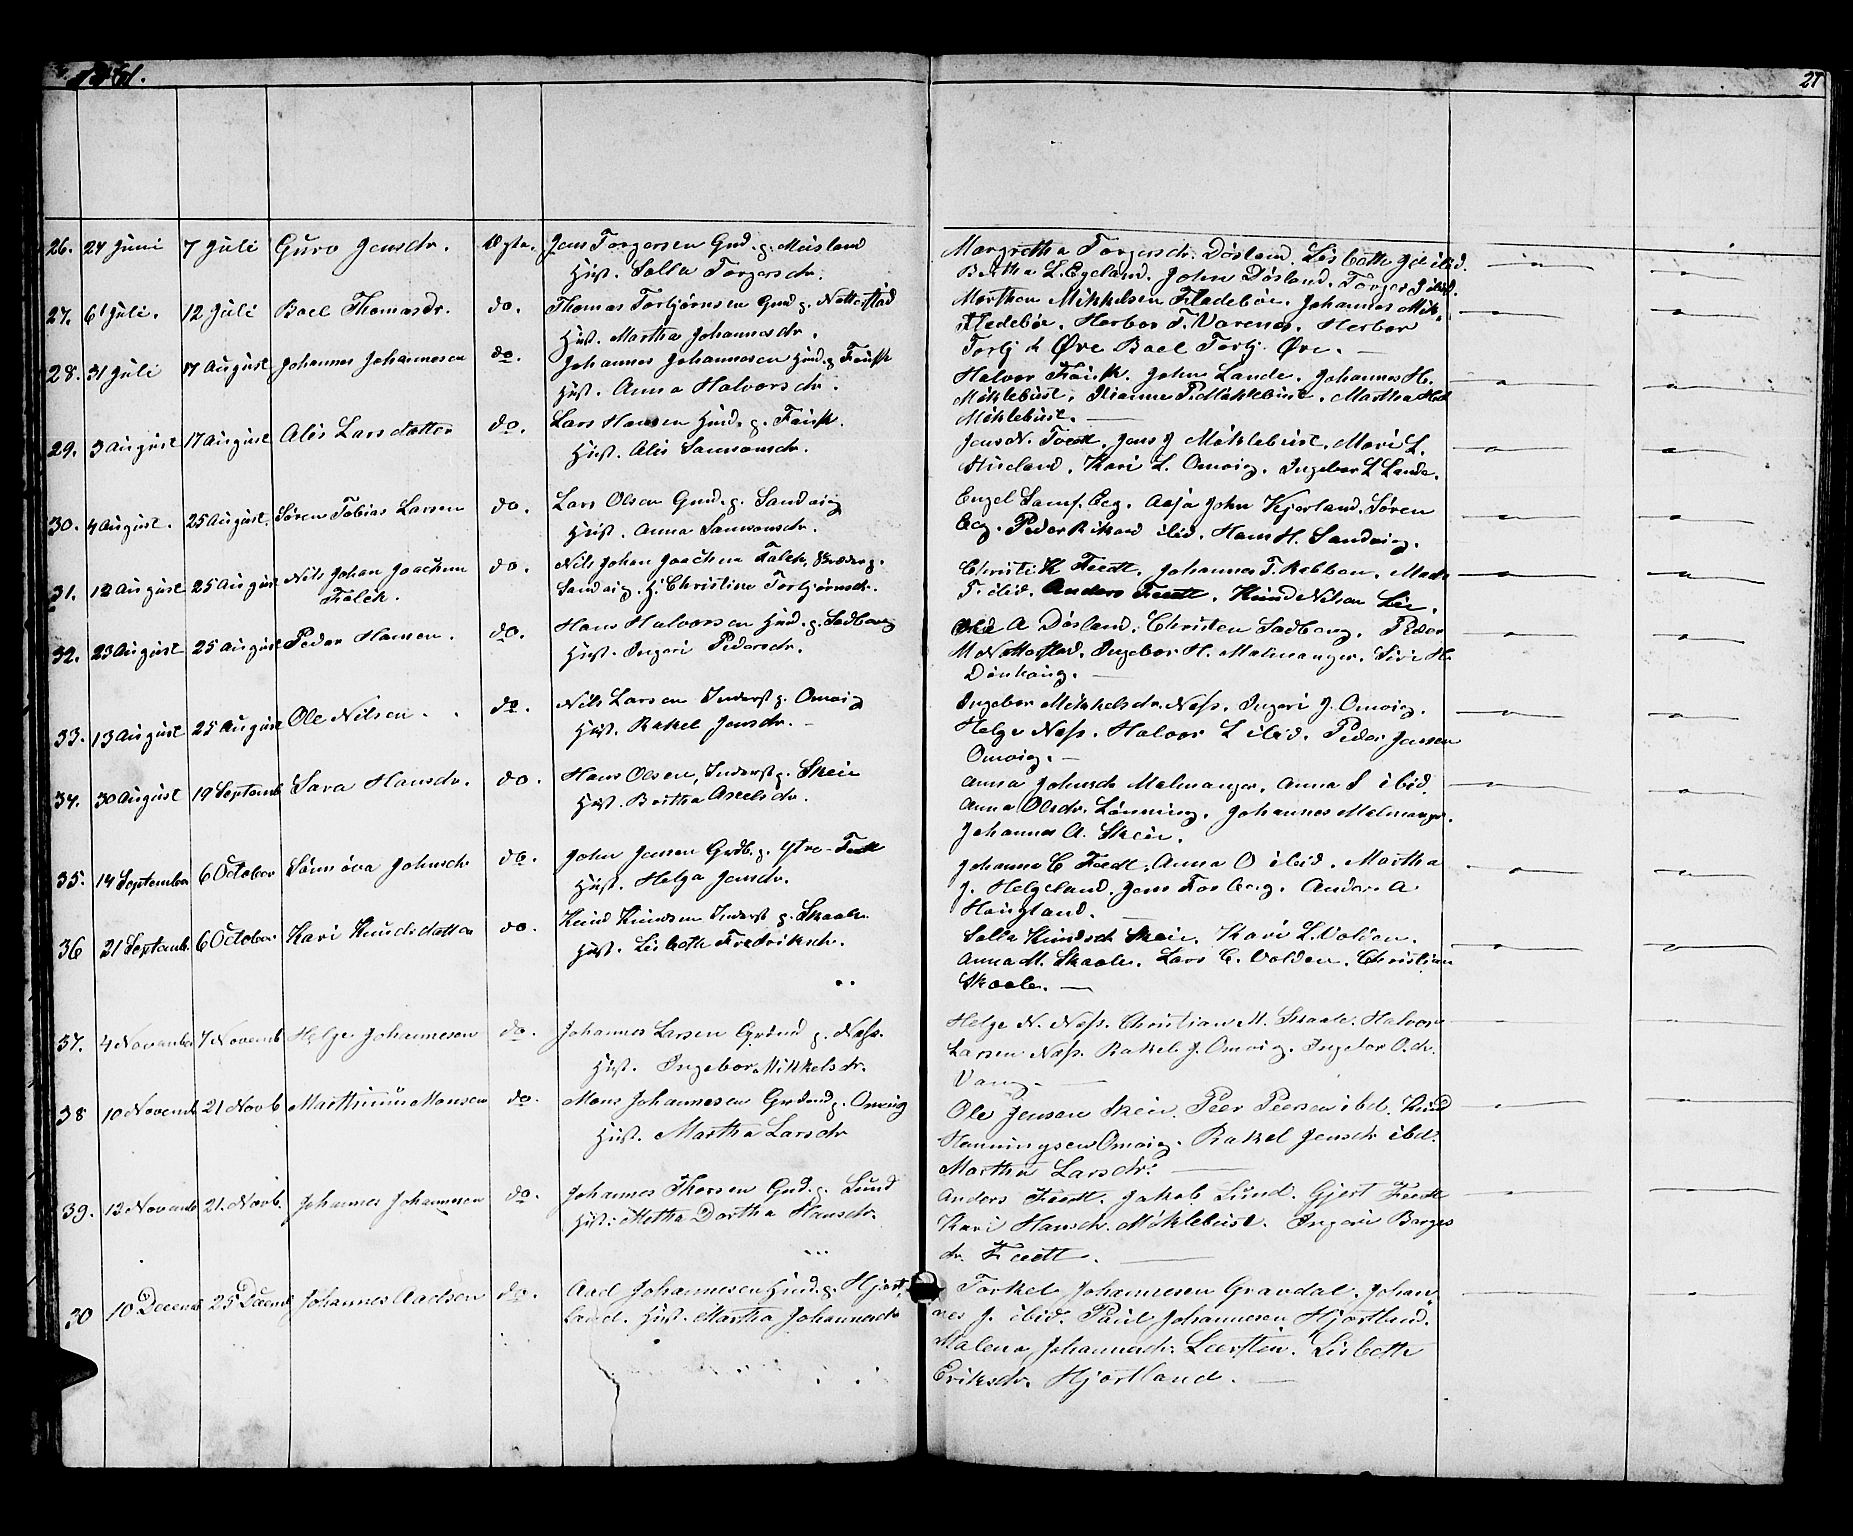 27
26. 24 Juni 7 Juli Guro Jensdr. Ægte. Jens Torgersen Gmd. g. Møsland
Hust. Salla Torgersdr.
Margretha Torgersdr. Døsland. Lisbeth ibid.
Bertha L. Egeland. John Døsland. Torger J ibid.
27. 6 Juli. 12 Juli Bael Thomasdr. do. Thomas Torbjørnsen Gmd g. Nattestad
Hust. Martha Johannesdr.
Morthen Mikkelsen Fladebøe. Johannes Mik-
Fladebøe. Herbor T. Varenes. Herbor
Torbj Øvre Bael Torbj. Øvre.
28. 31 Juli 17 August Johannes Johannesen do. Johannes Johannesen Husd. g. Fausk
Hust. Anna Halvorsdr.
Halvor Fausk. John Lande. Johannes H.
Møklebust. P. Møklebust. Martha
Møklebust.
29. 3 August 17 August Alis Larsdatter do. Lars Hansen Husd. g. Fausk.
Hust. Alis Samsonsdr.
Jens N. Feedt. Jens J Møklebust. Mari L.
Huseland. Kari L. Omvig. Ingebor L Lande.
30. 4 August. 25 August. Søren Tobias Larsen do. Lars Olsen Gmd. g. Sandvig
Hust. Anna Samsonsdr.
Engel Sams. Eeg. Asja John Kjerland. Søren
Eeg. Peder Rikard ibid. Hans H. Sandvig.
31. 12 August 25 August Nils Johan Joachim do. Nils Johan Joachim Falck, g.
Falck. Sandvig. H. Christine Torbjørnsdr.
Christi K Feedt. Johannes T. Rabben. Mads
T. ibid. Anders Feedt. Knud Nilsen Lie.
32. 23 August 25 August Peder Hansen. do. Hans Halvorsen Husd. g. Sadberg
Hust. Ingeri Pedersdr.
A Døsland. Christen Sadberg. Peder
M Nattestad. Ingebor H. Malmanger. Siri H.
Dønhaug.
33. 13 August 25 August Ole Nilsen. do. Nils Larsen Inderst g. Omvig
Hust. Rakel Jensdr.
Ingebor Mikkelsdr. Næss. Ingeri J. Omvig.
Helge Næss. Halvor L ibid. Peder Jensen
Omvig.
34. 30 August 19 Septemb Sara Hansdr. do. Hans Olsen, Inderst g. Skeie
Hust. Bertha Axelsdr.
Anna Johnsdr Malmanger. Anna S ibid.
Anna Olsdr. Lønning. Johannes Malmanger.
Johannes A. Skeie.
35. 14 September 6 October Sønnøva Johnsdr do. John Jensen Grdb. g. Ytre-Feedt
Hust. Helga Jensdr.
Johanna C Feedt. Anna O ibid. Martha
J. Helgeland. Jens Forberg. Anders A
Haugland.
36 21 Septemb. 6 October Kari Knudsdatter do. Knud Knudsen Inderst g. Skaale.
Hust. Lisbeth Fredriksdr.
Salla Knudsdr Skeie. Kari L. Valden.
Anna M. Skaale. Lars C. Valden. Christian
Skaale.
37. 4 November 7 Novemb Helge Johannesen do. Johannes Larsen Grdmd g. Næss.
Hust. Ingebor Mikkelsdr.
Helge N. Næss. Christian M. Skaale. Halvor
Larsen Næss. Rakel J. Omvig. Ingebor O.dr.
Vang.
38 10 Novemb 21 Novb Marthinus Monsen do. Mons Johannesen Grdmd g. Omvig
Hust. Martha Larsdr
Ole Jensen Skeie. Peer Peersen ibd. Knud
Hanningsen Omvig. Rakel Jensdr ibd.
Martha Larsdr.
39. 12 Novemb 21. Novb. Johannes Johannesen do. Johannes Thorsen Gmd. g. Lund
Hust: Metha Dorthea Hansdr.
Anders Feedt. Jakob Lund. Gjert Feedt
Kari Hansdr. Møklebust. Ingeri Børges
dr. Feedt.
30 10 Decemb 25 Decemb Johannes Aadsen do. Aad Johannesen Husd. g. Hjort
land. Hust. Martha Johannesdr
Torkel Johannesen Gravdal. Johan-
nes J. ibid. Paul Johannesen Hjortland.
Malena Johannesdr. Leersten. Lisbeth
Eriksdr. Hjortland.